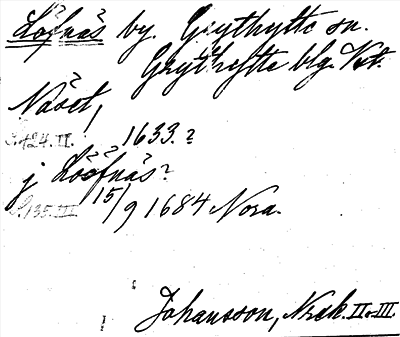 Löfnäs by. Grythytte sn.
Grythytte blg. Vst.
Näset,
S. 424. II. 1633. ?
j Lööfnäs?
S. 135. III 15/9 1684 Nora.
Johansson, Nrek. II o. III.